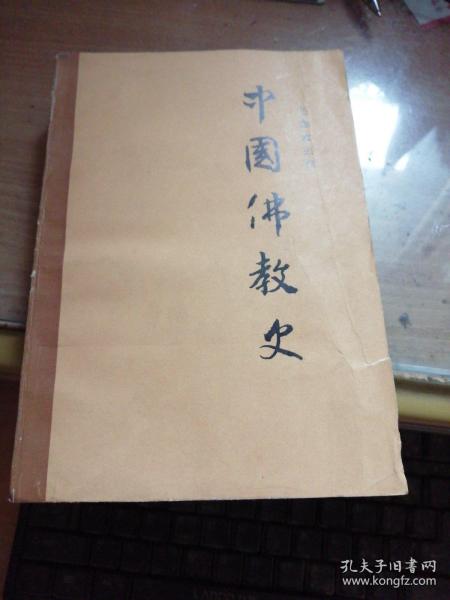 中国佛教史
孔夫子旧书网
www.kongfz.com